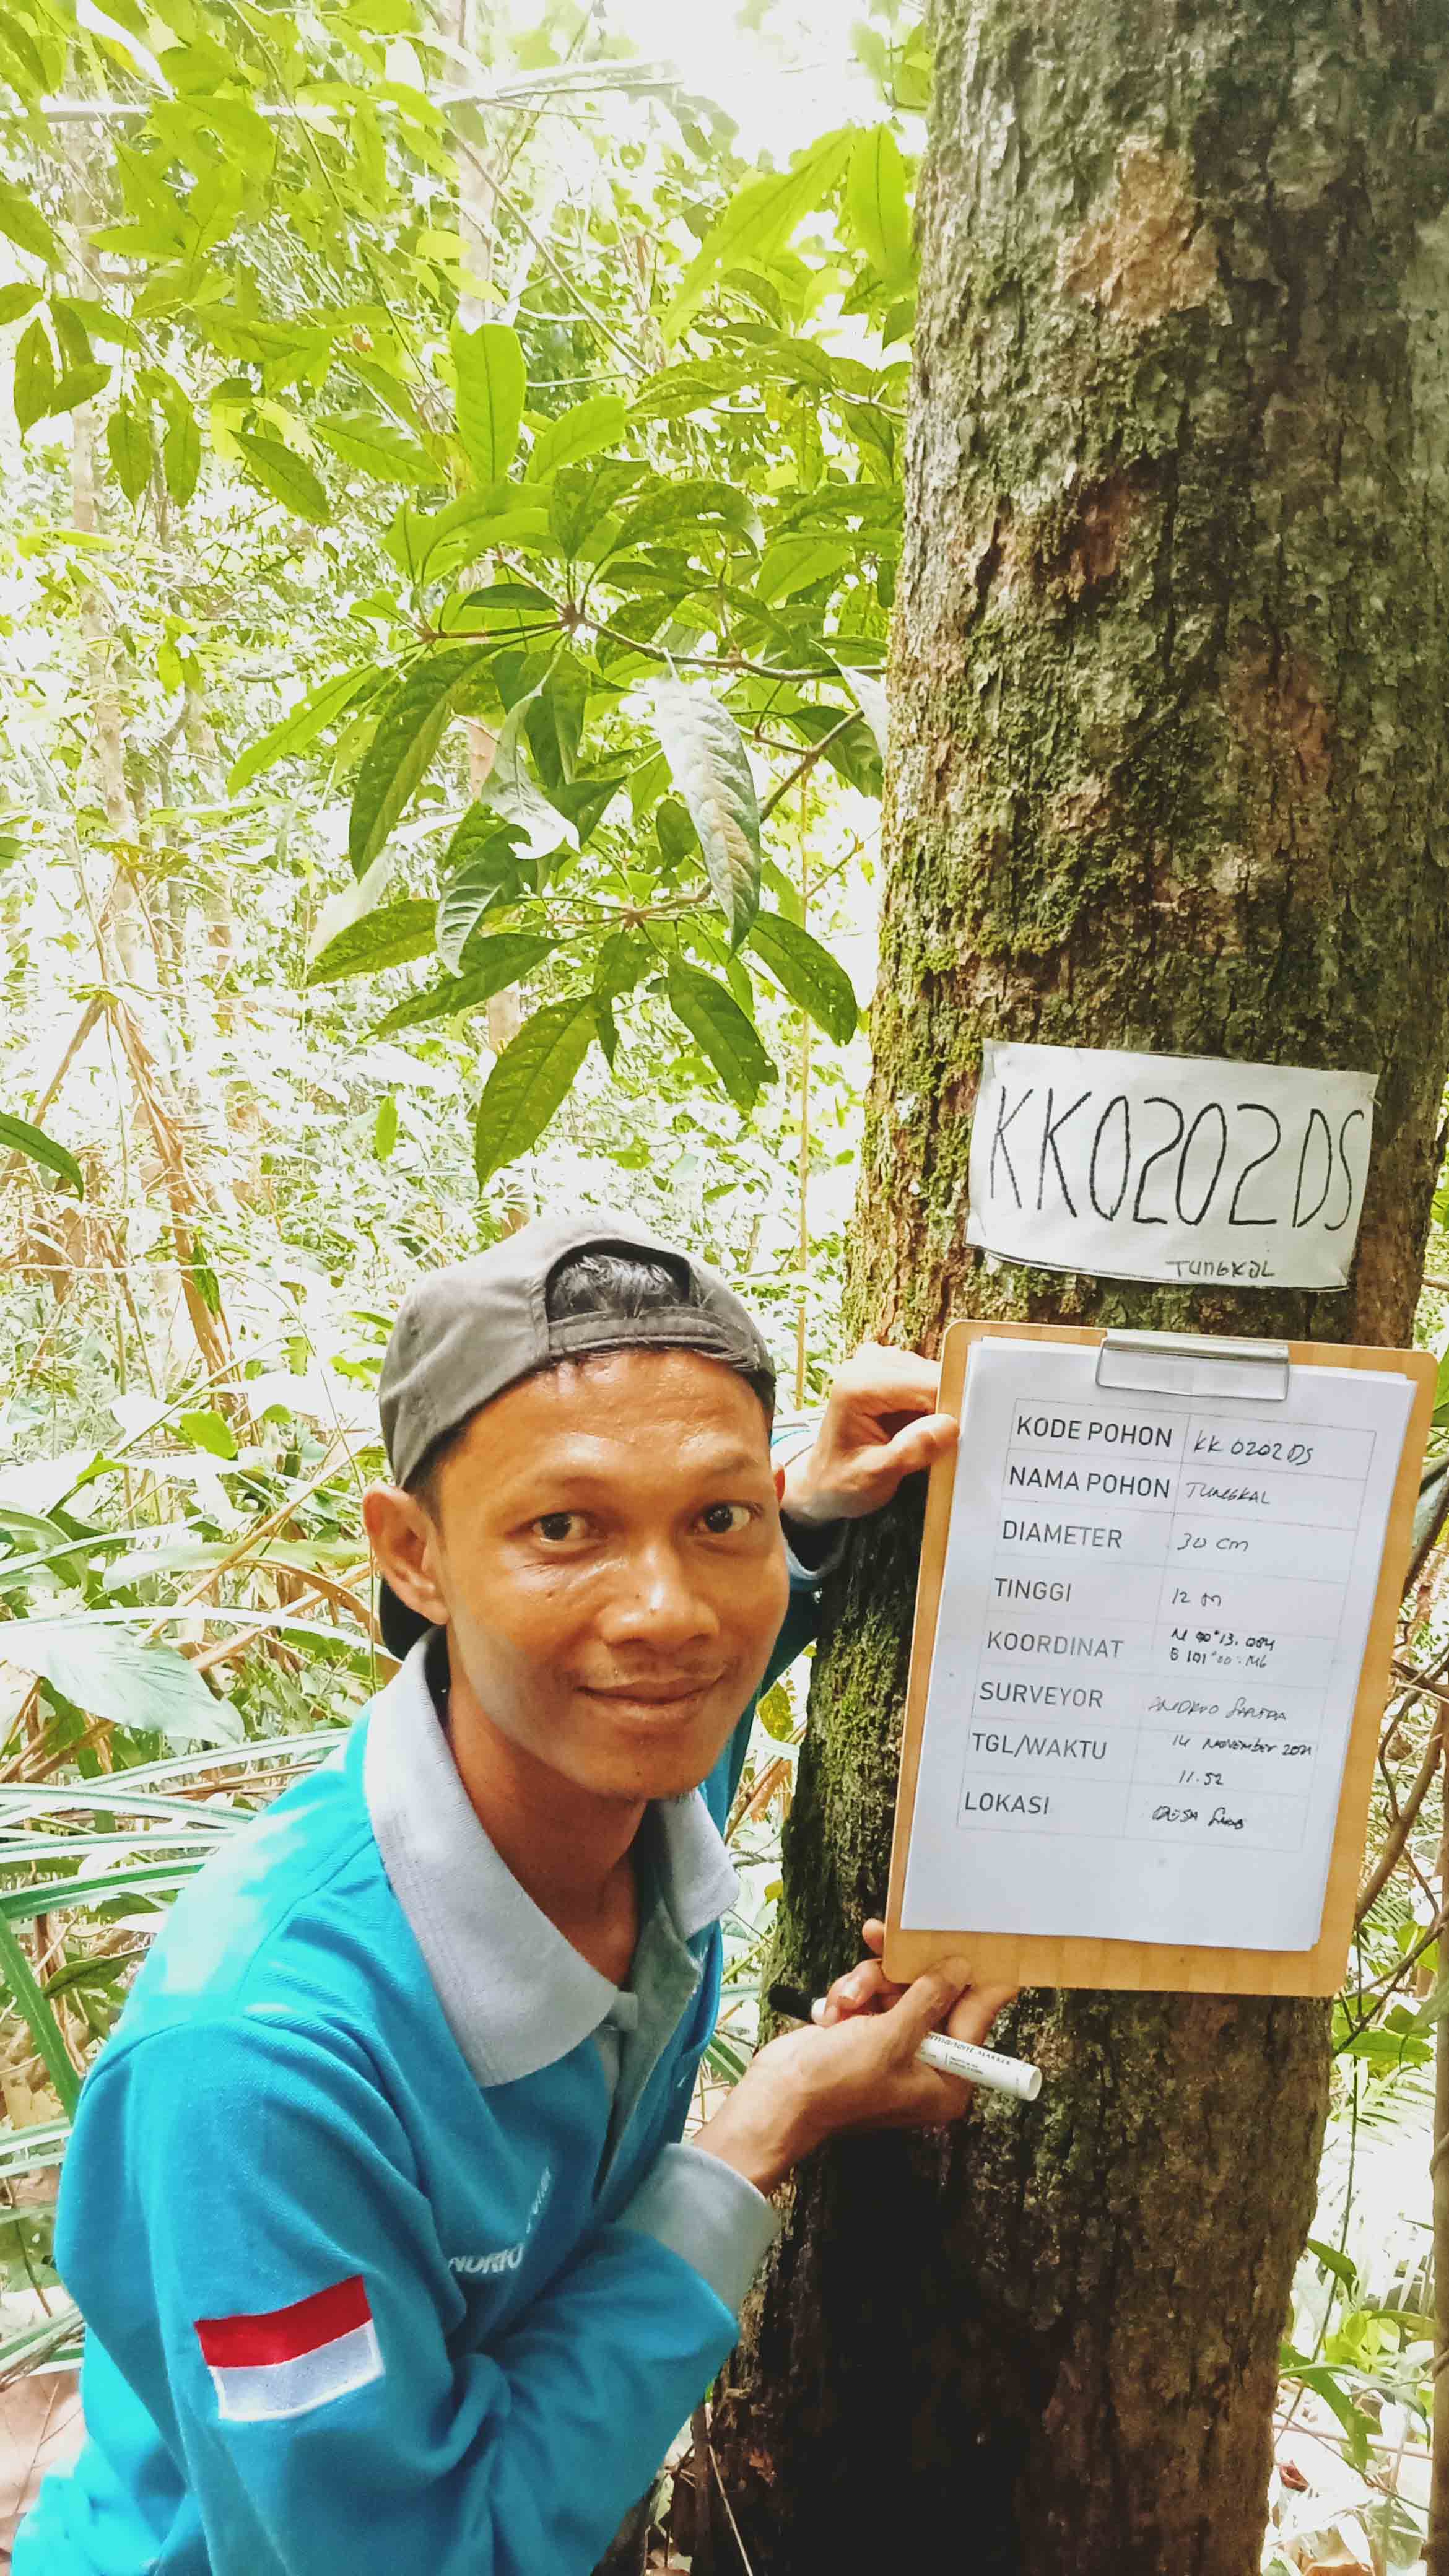 KK0202DS
TUNGKAL
KODE POHON KK 0202 DS
NAMA POHON TUNGKAL
DIAMETER 30 cm
TINGGI 12 m
KOORDINAT N 00°13.084
E 101°00.
SURVEYOR
TGL/WAKTU 14 November 2021
11.52
LOKASI DESA
PERMANENT MARKER